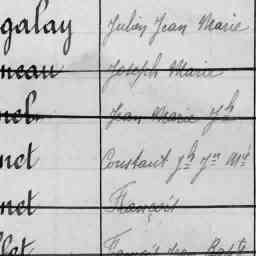 galay Julien Jean Marie
neau Joseph Marie
nel Jean Marie Jh
net Constant Jh Jn Mie
net François
let François Jean Bapte